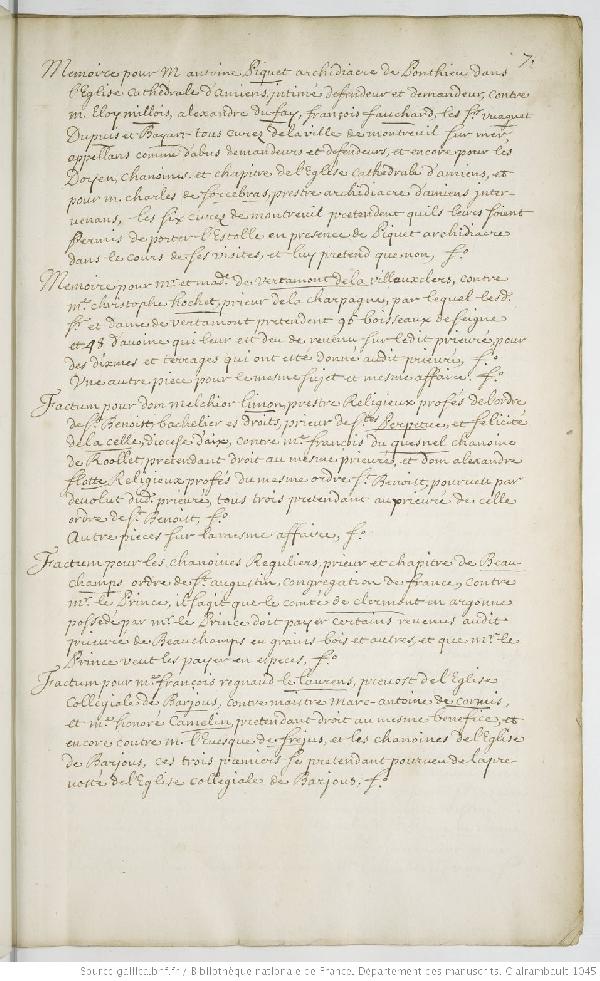 7.
Memoire pour M antoine Piquet archidiacre de Ponthieu dans
l'Eglise cathedrale d'amiens, intimé defendeur et demandeur, contre
m. Eloy millois, alexandre du fay, françois fauchard, les Srs
Dupuis et Bayart tous curez de la ville de montreuil sur mer
appellans comme d'abus demandeurs et defendeurs, et encore pour les
Doyen, chanoines et chapitre de l'Eglise cathedrale d'amiens, et
pour m. charles de prestre archidiacre d'amiens inter-
venans, les six curez de montreuil pretendent qu'ils leurs soient
permis de porter l'Estolle en presence de Piquet archidiacre
dans le cours de ses visites, et luy pretend que non, fo.
Memoire pour mr. et made. de Vertamont de la villeauxclers, contre
me. christophe hochet, prieur de la charpagne, par lequel lesd.
sr. et dame de vertamont pretendent 96 boisseaux de seigle
et 48 d'avoine qui leur est deu de revenu sur ledit prieuré, pour
des dixmes et terrages qui ont esté donné audit prieuré, fo.
Une autre piece pour le mesme sujet et mesme affaire. fo.
Factum pour dom melchior Limon, prestre Religieux profés de l'ordre
de St. Benoist, bachelier es droits, prieur de stes Perpetue, et felicité
de la celle, diocese d'aix, contre me. françois du quesnel chanoine
de pretendant droit au mesme prieuré, et dom alexandre
flotte Religieux profés du mesme ordre St. Benoist, pourveu par
devolut dud. prieuré, tous trois pretendant au prieuré de celle
ordre de St. Benoist, fo.
Autre pieces sur la mesme affaire, fo.
Factum pour les chanoines Reguliers, prieur et chapitre de Beau-
champs ordre de St. augustin, congregation de france, contre
mr. le Prince, il s'agit que le comté de clermont en argonne
possedé par mr. le Prince doit payer certains revenus audit
prieuré de Beauchamps en grains bois et autres, et que mr. le
Prince veut les payer en especes, fo.
Factum pour me. françois regnaud le laurens, prevost de l'Eglise
Collegiale de Barjous, contre maitre Marc-antoine de cormis,
et me. honoré Camelin, pretendant droit au mesme benefice, et
encore contre m. l'Evesque de frejus, et les chanoines de l'Eglise
de Barjous, ces trois premiers se pretendant pourveu de la pre-
vosté de l'Eglise collegiale de Barjous, fo.
Source gallica.bnf.fr / Bibliothèque nationale de France. Département des manuscrits. Clairambault 1045